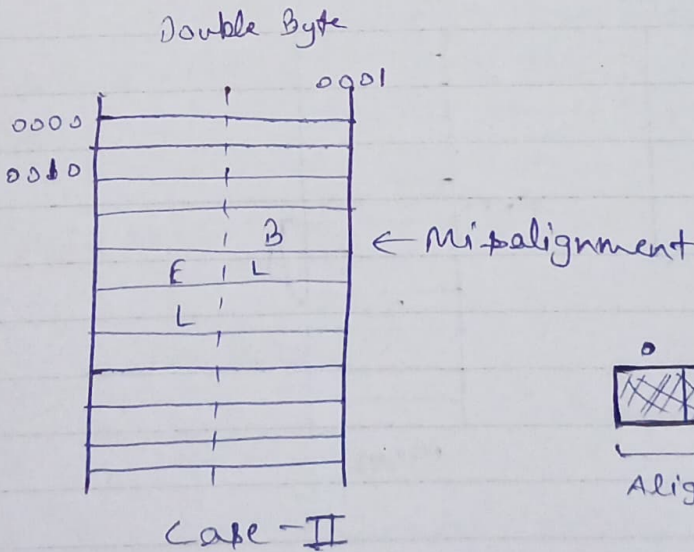 Double Byte
0001
0000
0010
B
← Misalignment
E L
L
0
Alig
Case-II